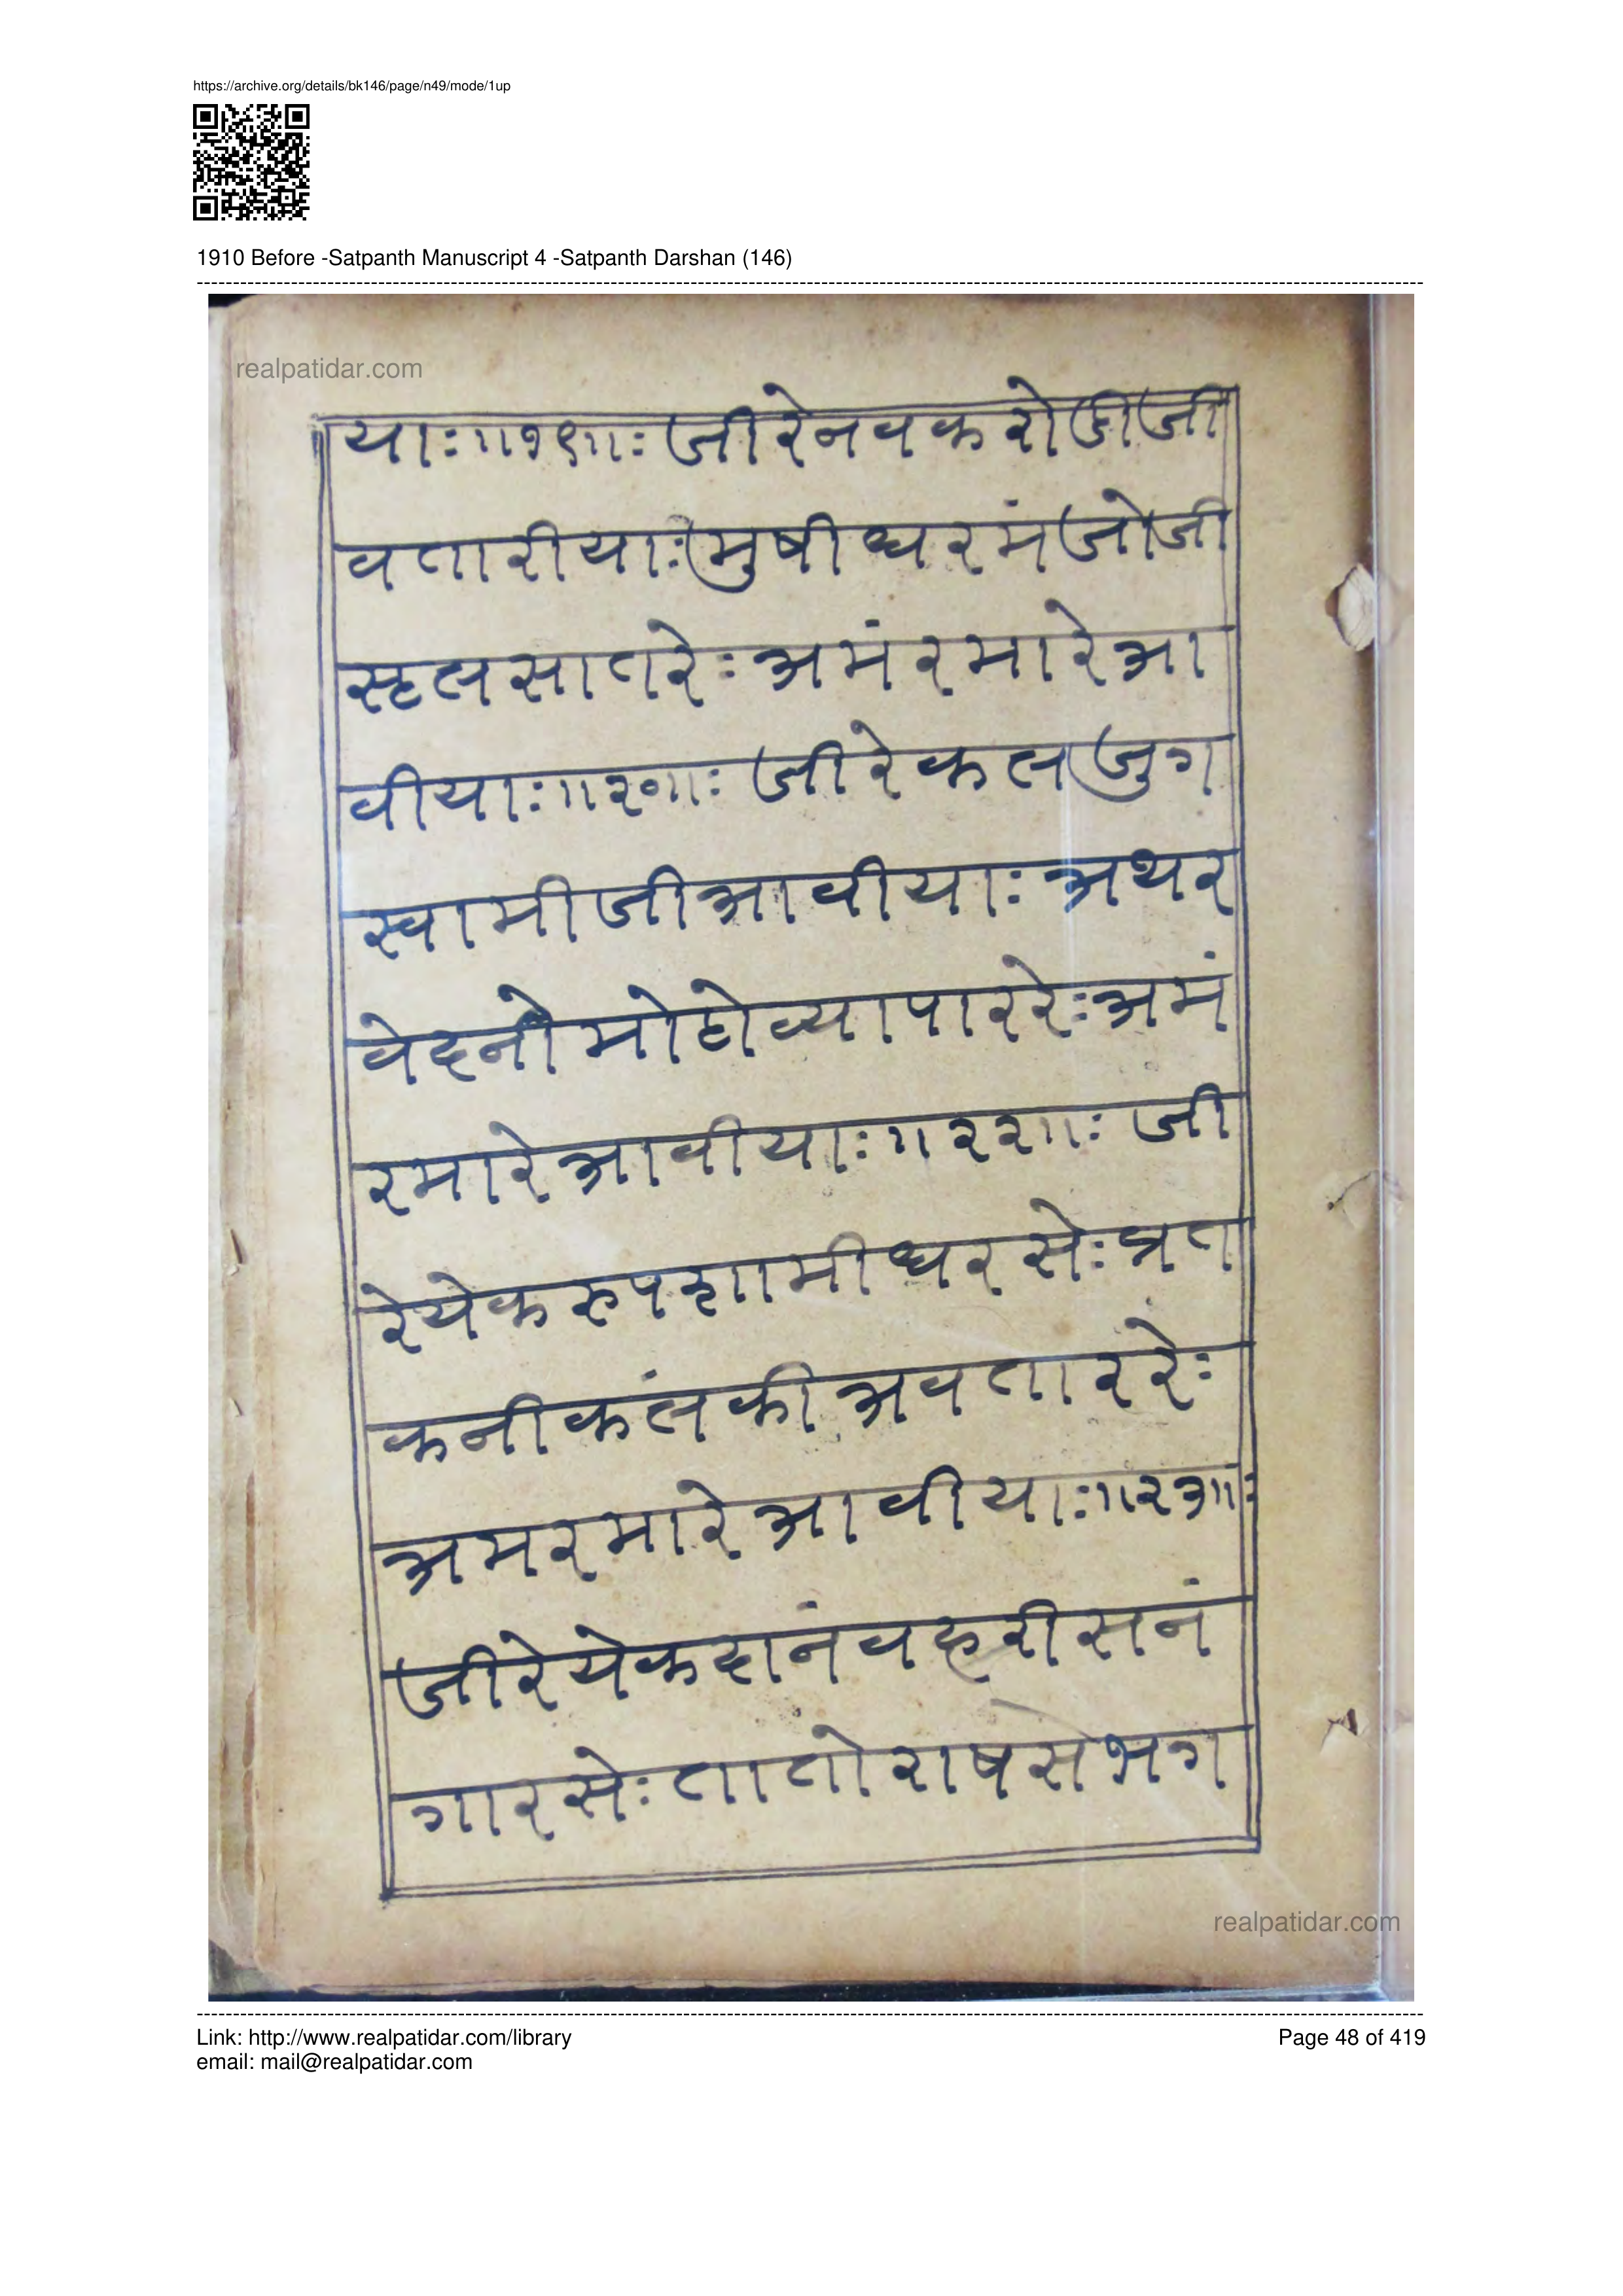 https://archive.org/details/bk146/page/n49/mode/1up
1910 Before -Satpanth Manuscript 4 -Satpanth Darshan (146)
realpatidar.com
याः॥१९॥ः जीरेनवकरोडीजी
वतारीयाःमुषीधरमंजोजी
स्हलसातरेः अमंरमारेआ
वीयाः॥२०॥ः जीरेकलजुग
स्वामीजीआवीयाः अथर
वेदनोमोहोव्यापाररेःअमं
रमारेआवीयाः॥२२॥ः जी
रेयेकरुपशामीधरसेःत्रत
कनीकंलकीअवताररेः
अमरमारेआवीयाः॥२३॥ः
जीरेयेकदांनंवहरीसनं
गारसेःतातोराषसेभग
realpatidar.com
Link: http://www.realpatidar.com/library
email: mail@realpatidar.com
Page 48 of 419